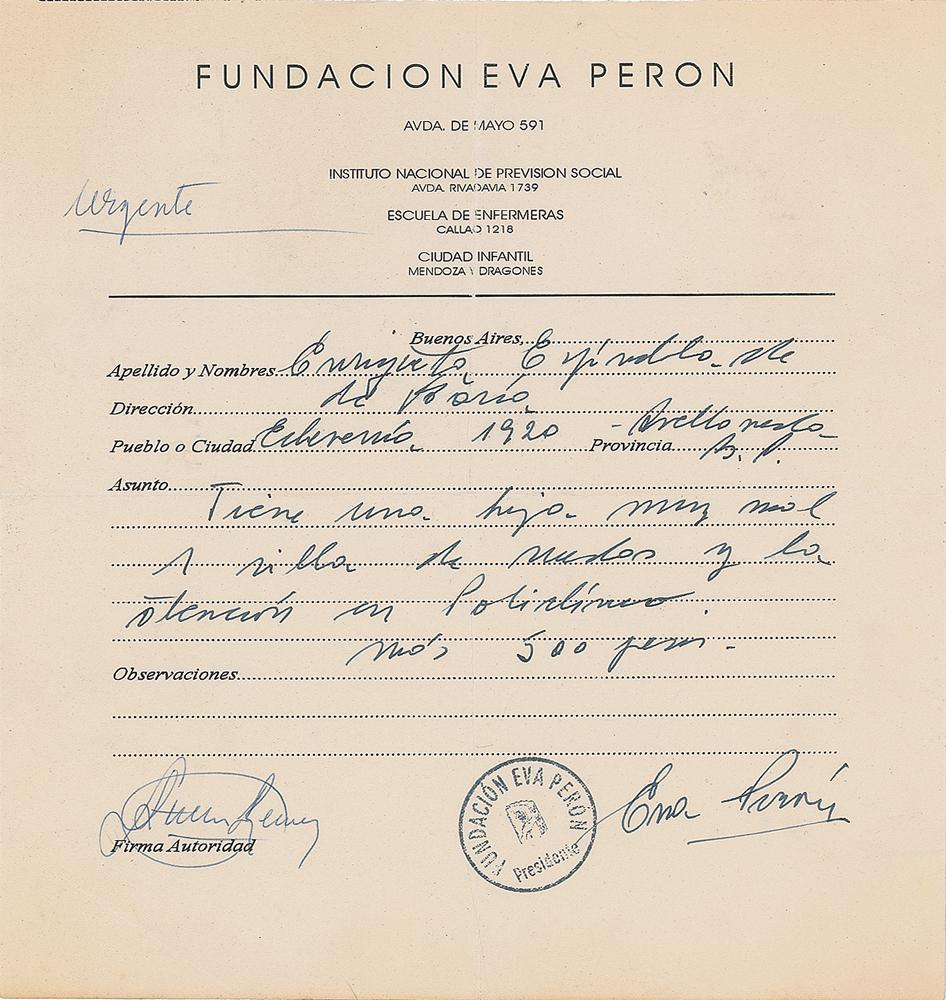 FUNDACION EVA PERON
AVDA. DE MAYO 591
INSTITUTO NACIONAL DE PREVISION SOCIAL
AVDA. RIVADAVIA 1739
Urgente
ESCUELA DE ENFERMERAS
CALLAO 1218
CIUDAD INFANTIL
MENDOZA Y DRAGONES
Buenos Aires,
Apellido y Nombres Espindola de
de María
Dirección
Pueblo o Ciudad Echeverría 1920 - Avellaneda
Provincia B. A.
Asunto
Tiene una hija muy mal
1 silla de ruedas y la
atención en Policlínico.
más 500 pesos.
Observaciones
Firma Autoridad
FUNDACIÓN EVA PERÓN
Presidente
Eva Perón